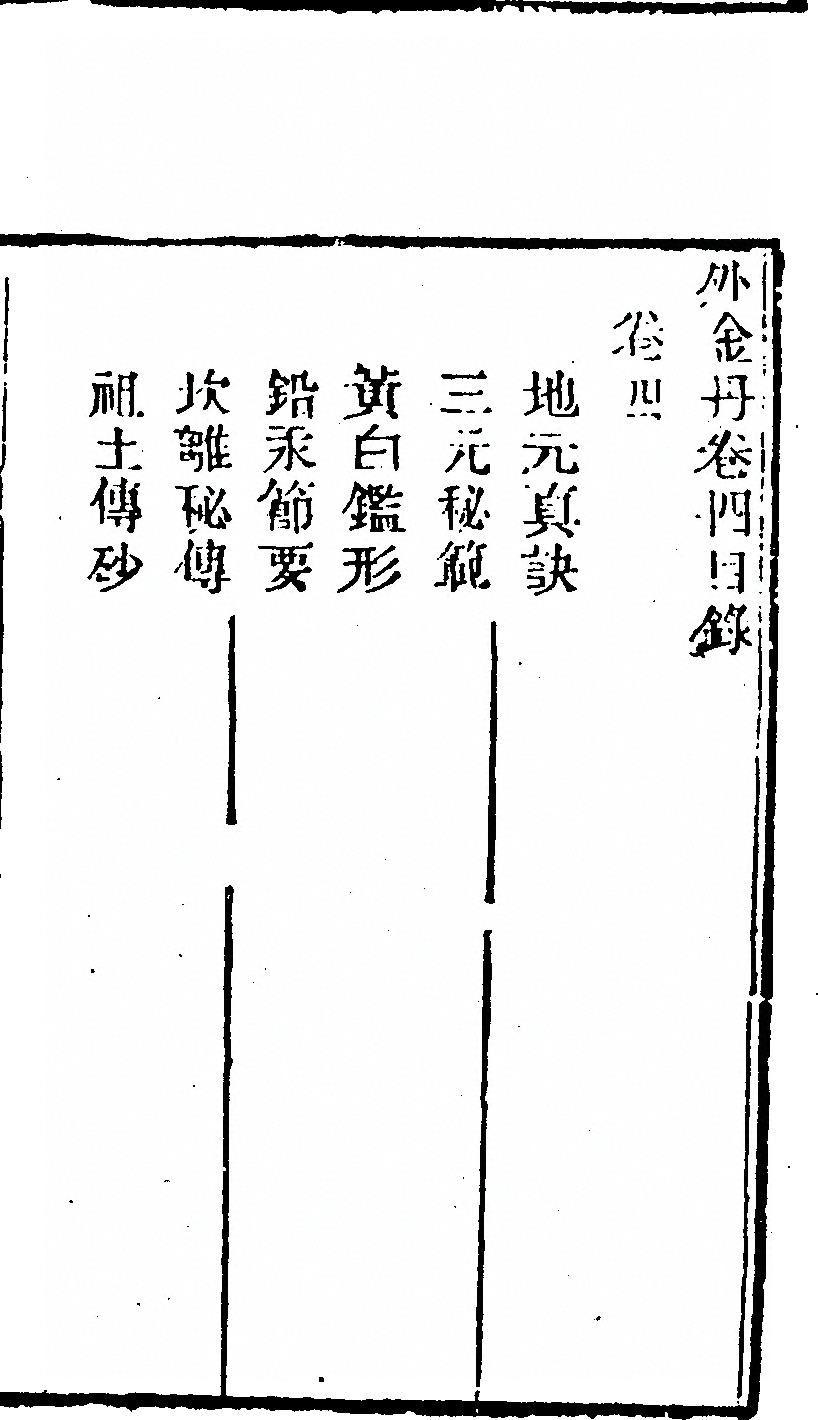 外金丹卷四目錄
卷四
地元真訣
三元秘範
黃白鑑形
鉛汞節要
坎離秘傳
祖土傳砂